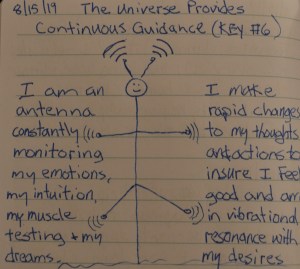 8/15/19 The Universe Provides
Continuous Guidance (KEY #6)
I am an
antenna
constantly
monitoring
my emotions,
my intuition,
my muscle
testing & my
dreams.
I make
rapid changes
to my thoughts
and actions to
insure I feel
good and am
in vibrational
resonance with
my desires